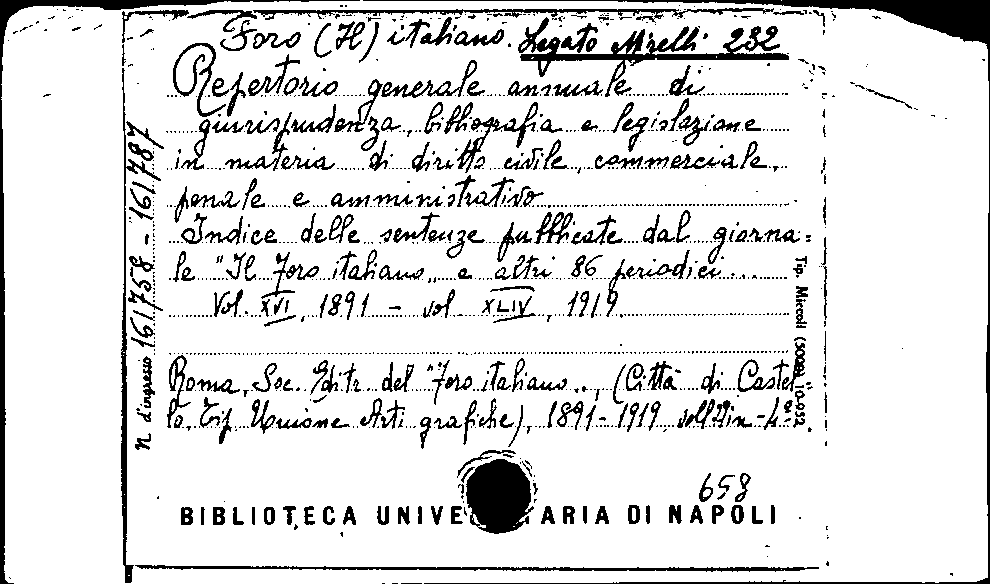 Foro (Il) italiano. Legato Mirelli 232
Repertorio generale annuale di
giurisprudenza, bibliografia e legislazione
in materia di diritto civile, commerciale,
penale e amministrativo.
Indice delle sentenze pubblicate dal giorna=
le "Il Foro italiano" e altri 86 periodici...
Vol. XVI, 1891 - vol. XLIV, 1919.
Roma, Soc. Editr. del "Foro italiano", (Città di Castel=
lo, Tip. Unione Arti grafiche), 1891-1919, voll. in-4º.
658
BIBLIOTECA UNIVE TARIA DI NAPOLI
N d'ingresso 161758 - 161787
Tip. Miccoli